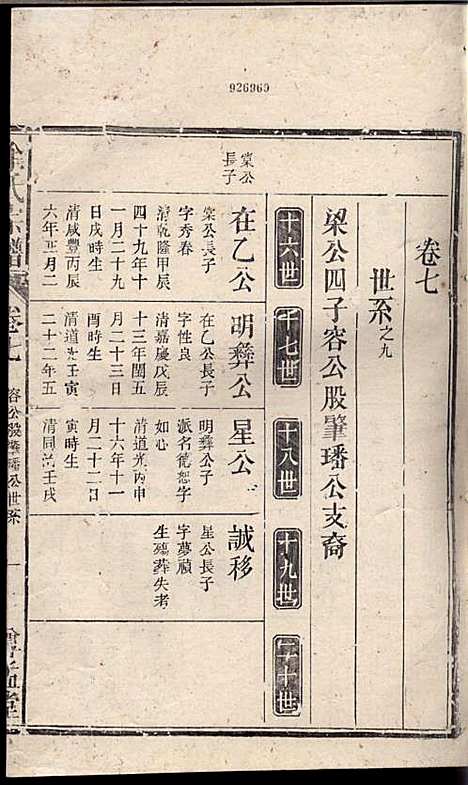 926969
卷七
世系之九
梁公四子容公股肇璠公支裔
十六世
十七世
十八世
十九世
二十世
棠公
長子
在乙公
棠公長子
字秀春
清乾隆甲辰
四十九年十
一月二十九
日戌時生
清咸豐丙辰
六年正月二
明彝公
在乙公長子
字性良
清嘉慶戊辰
十三年閏五
月二十三日
酉時生
清道光壬寅
二十二年五
星公
明彝公子
派名德恕字
如心
清道光丙申
十六年十一
月二十二日
寅時生
清同治壬戌
誠移
星公長子
字夢禎
生殤葬失考
氏宗譜
卷七
容公股肇璠公世系
一